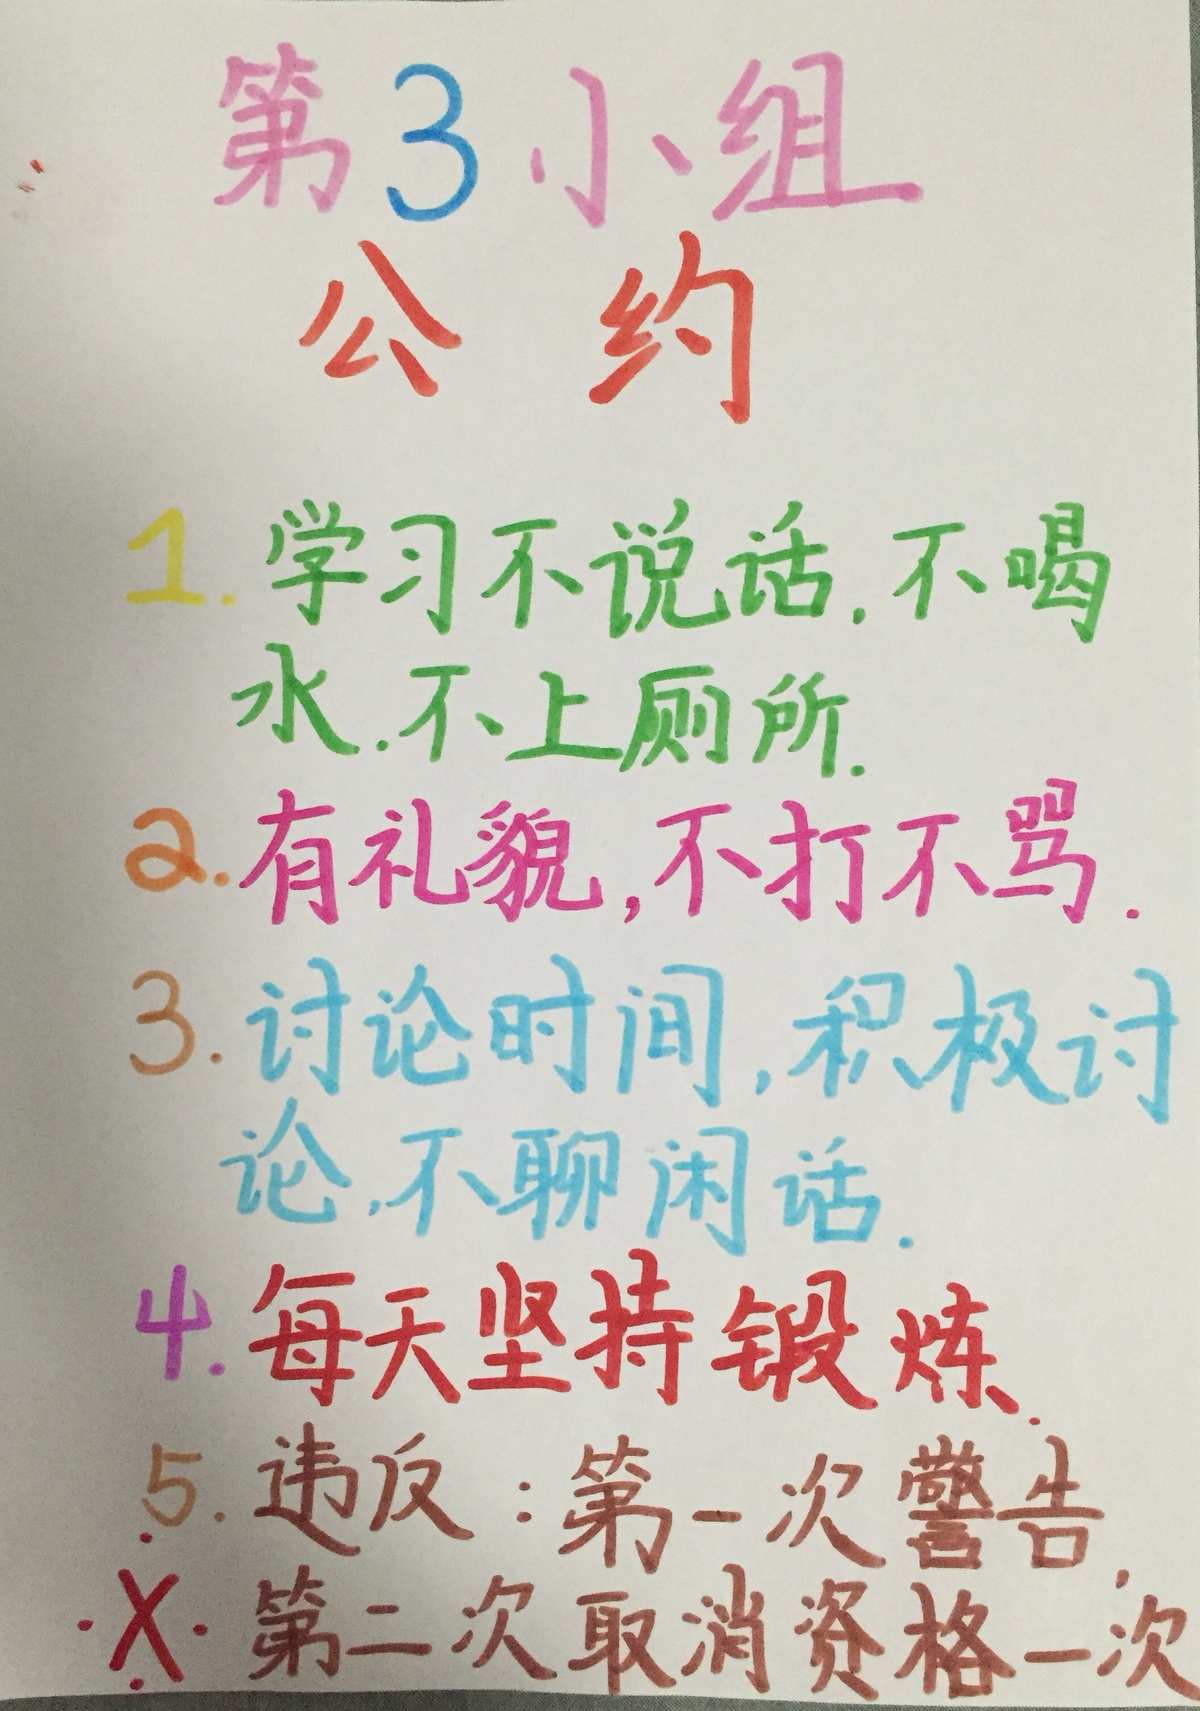 第3小组
公约
1. 学习不说话.不喝
水.不上厕所.
2. 有礼貌,不打不骂.
3. 讨论时间,积极讨
论,不聊闲话.
4. 每天坚持锻炼.
5. 违反:第一次警告,
X 第二次取消资格一次